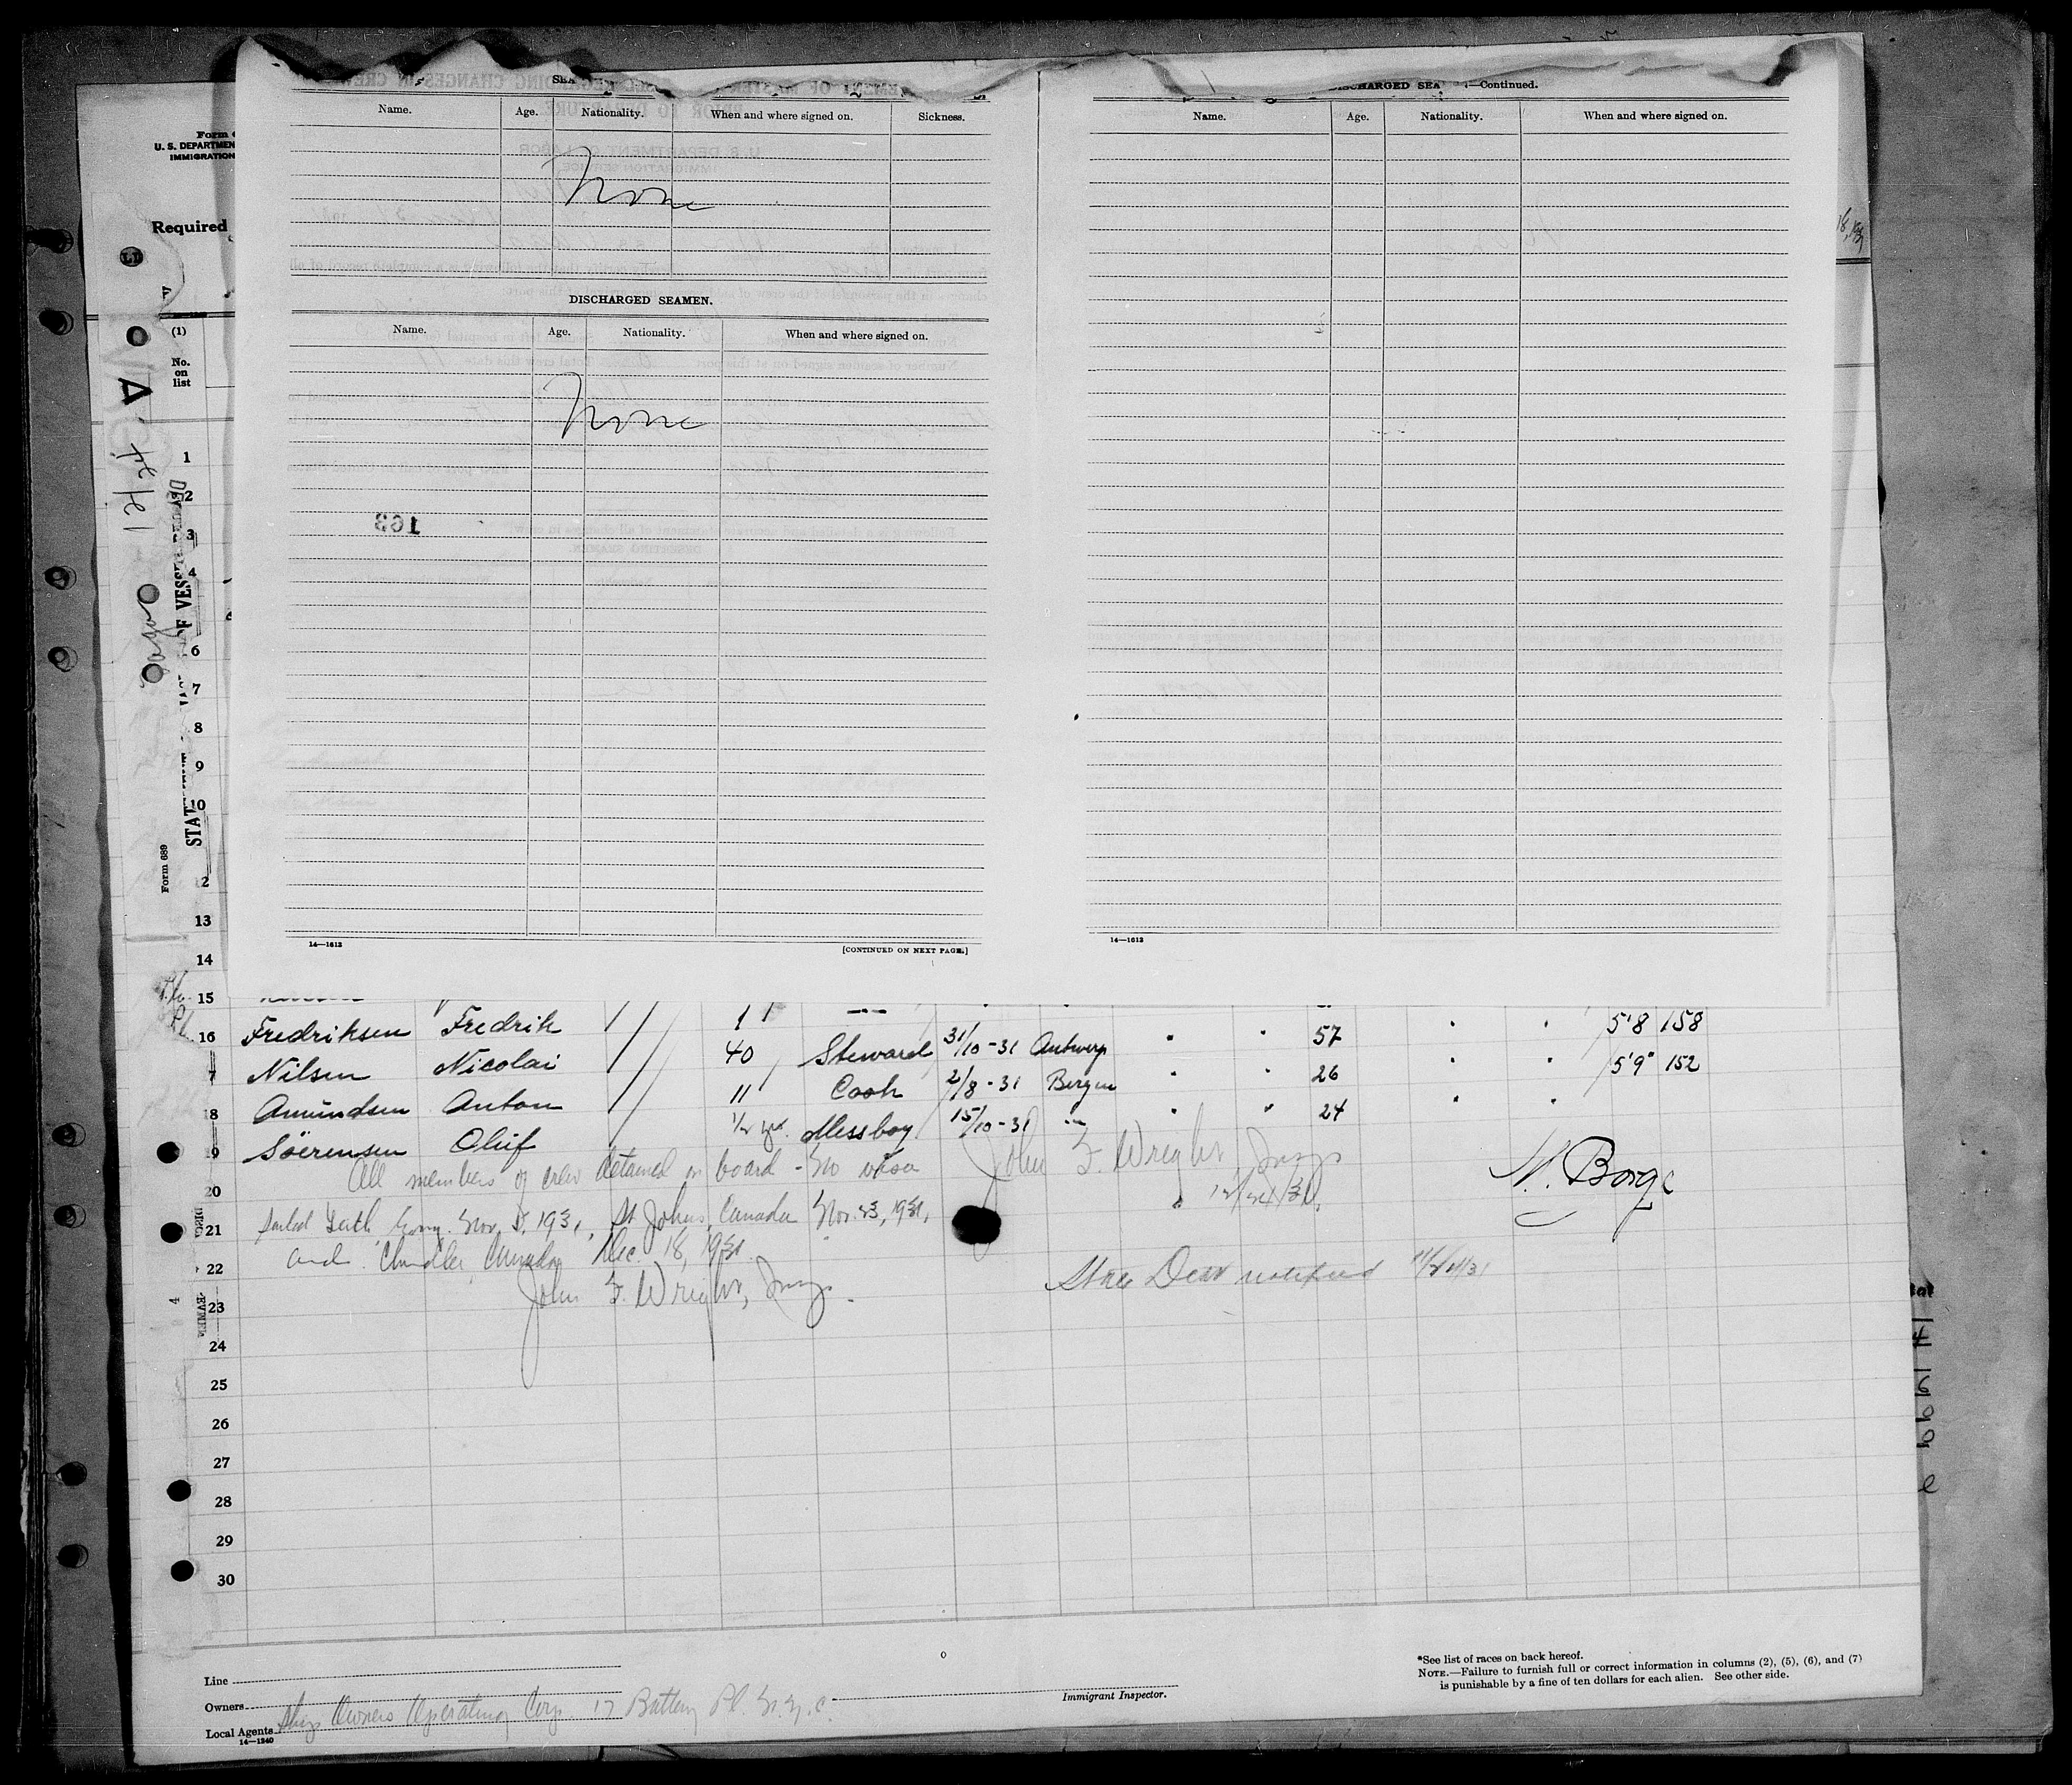 Form
U. S. DEPARTMEN
IMMIGRATION
Required
(1)
No.
on
list
Form 689
SEA
Name. Age. Nationality. When and where signed on. Sickness.
None
DISCHARGED SEAMEN.
Name. Age. Nationality. When and where signed on.
None
163
14—1612
[CONTINUED ON NEXT PAGE.]
DISCHARGED SEA —Continued.
Name. Age. Nationality. When and where signed on.
14—1612
1
2
3
4
6
7
8
9
10
12
13
14
15
16 Fredriksen Fredrik 11 — 5'8 158
Nilsen Nicolai 40 Steward 31/10-31 Antwerp " " 57 " " 5'9" 152
Amundsen Anton 11 Cook 2/8-31 Bergen " " 26 " "
Söerensen Oluf 1/2 yr. Messboy 15/10-31 " " " 24 " "
All members of crew detained on board - No visa John F. Wright, Insp. 12/24/31. N. Borge
Sailed Leith Nov. 5, 1931, St Johns, Canada Nov. 23, 1931,
and Chandler, Canada Dec. 18, 1931.
John F. Wright, Insp.
notified
20
21
22
23
24
25
26
27
28
29
30
Line
Owners
Local Agents Ship Owners Operating Corp. 17 Battery Pl. N.Y.C.
14—1240
Immigrant Inspector.
*See list of races on back hereof.
NOTE.—Failure to furnish full or correct information in columns (2), (5), (6), and (7)
is punishable by a fine of ten dollars for each alien. See other side.